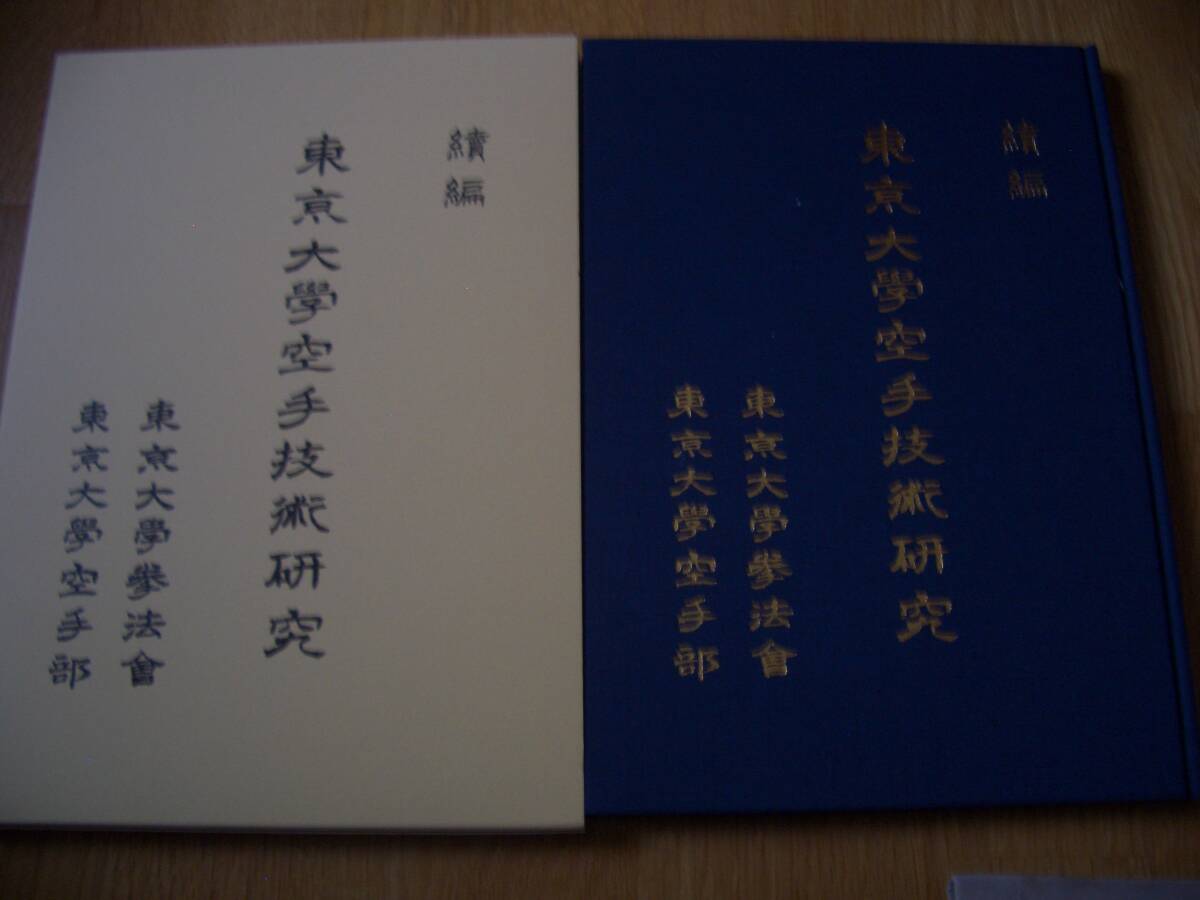 續編
東京大學空手技術研究
東京大學拳法會
東京大學空手部
續編
東京大學空手技術研究
東京大學拳法會
東京大學空手部